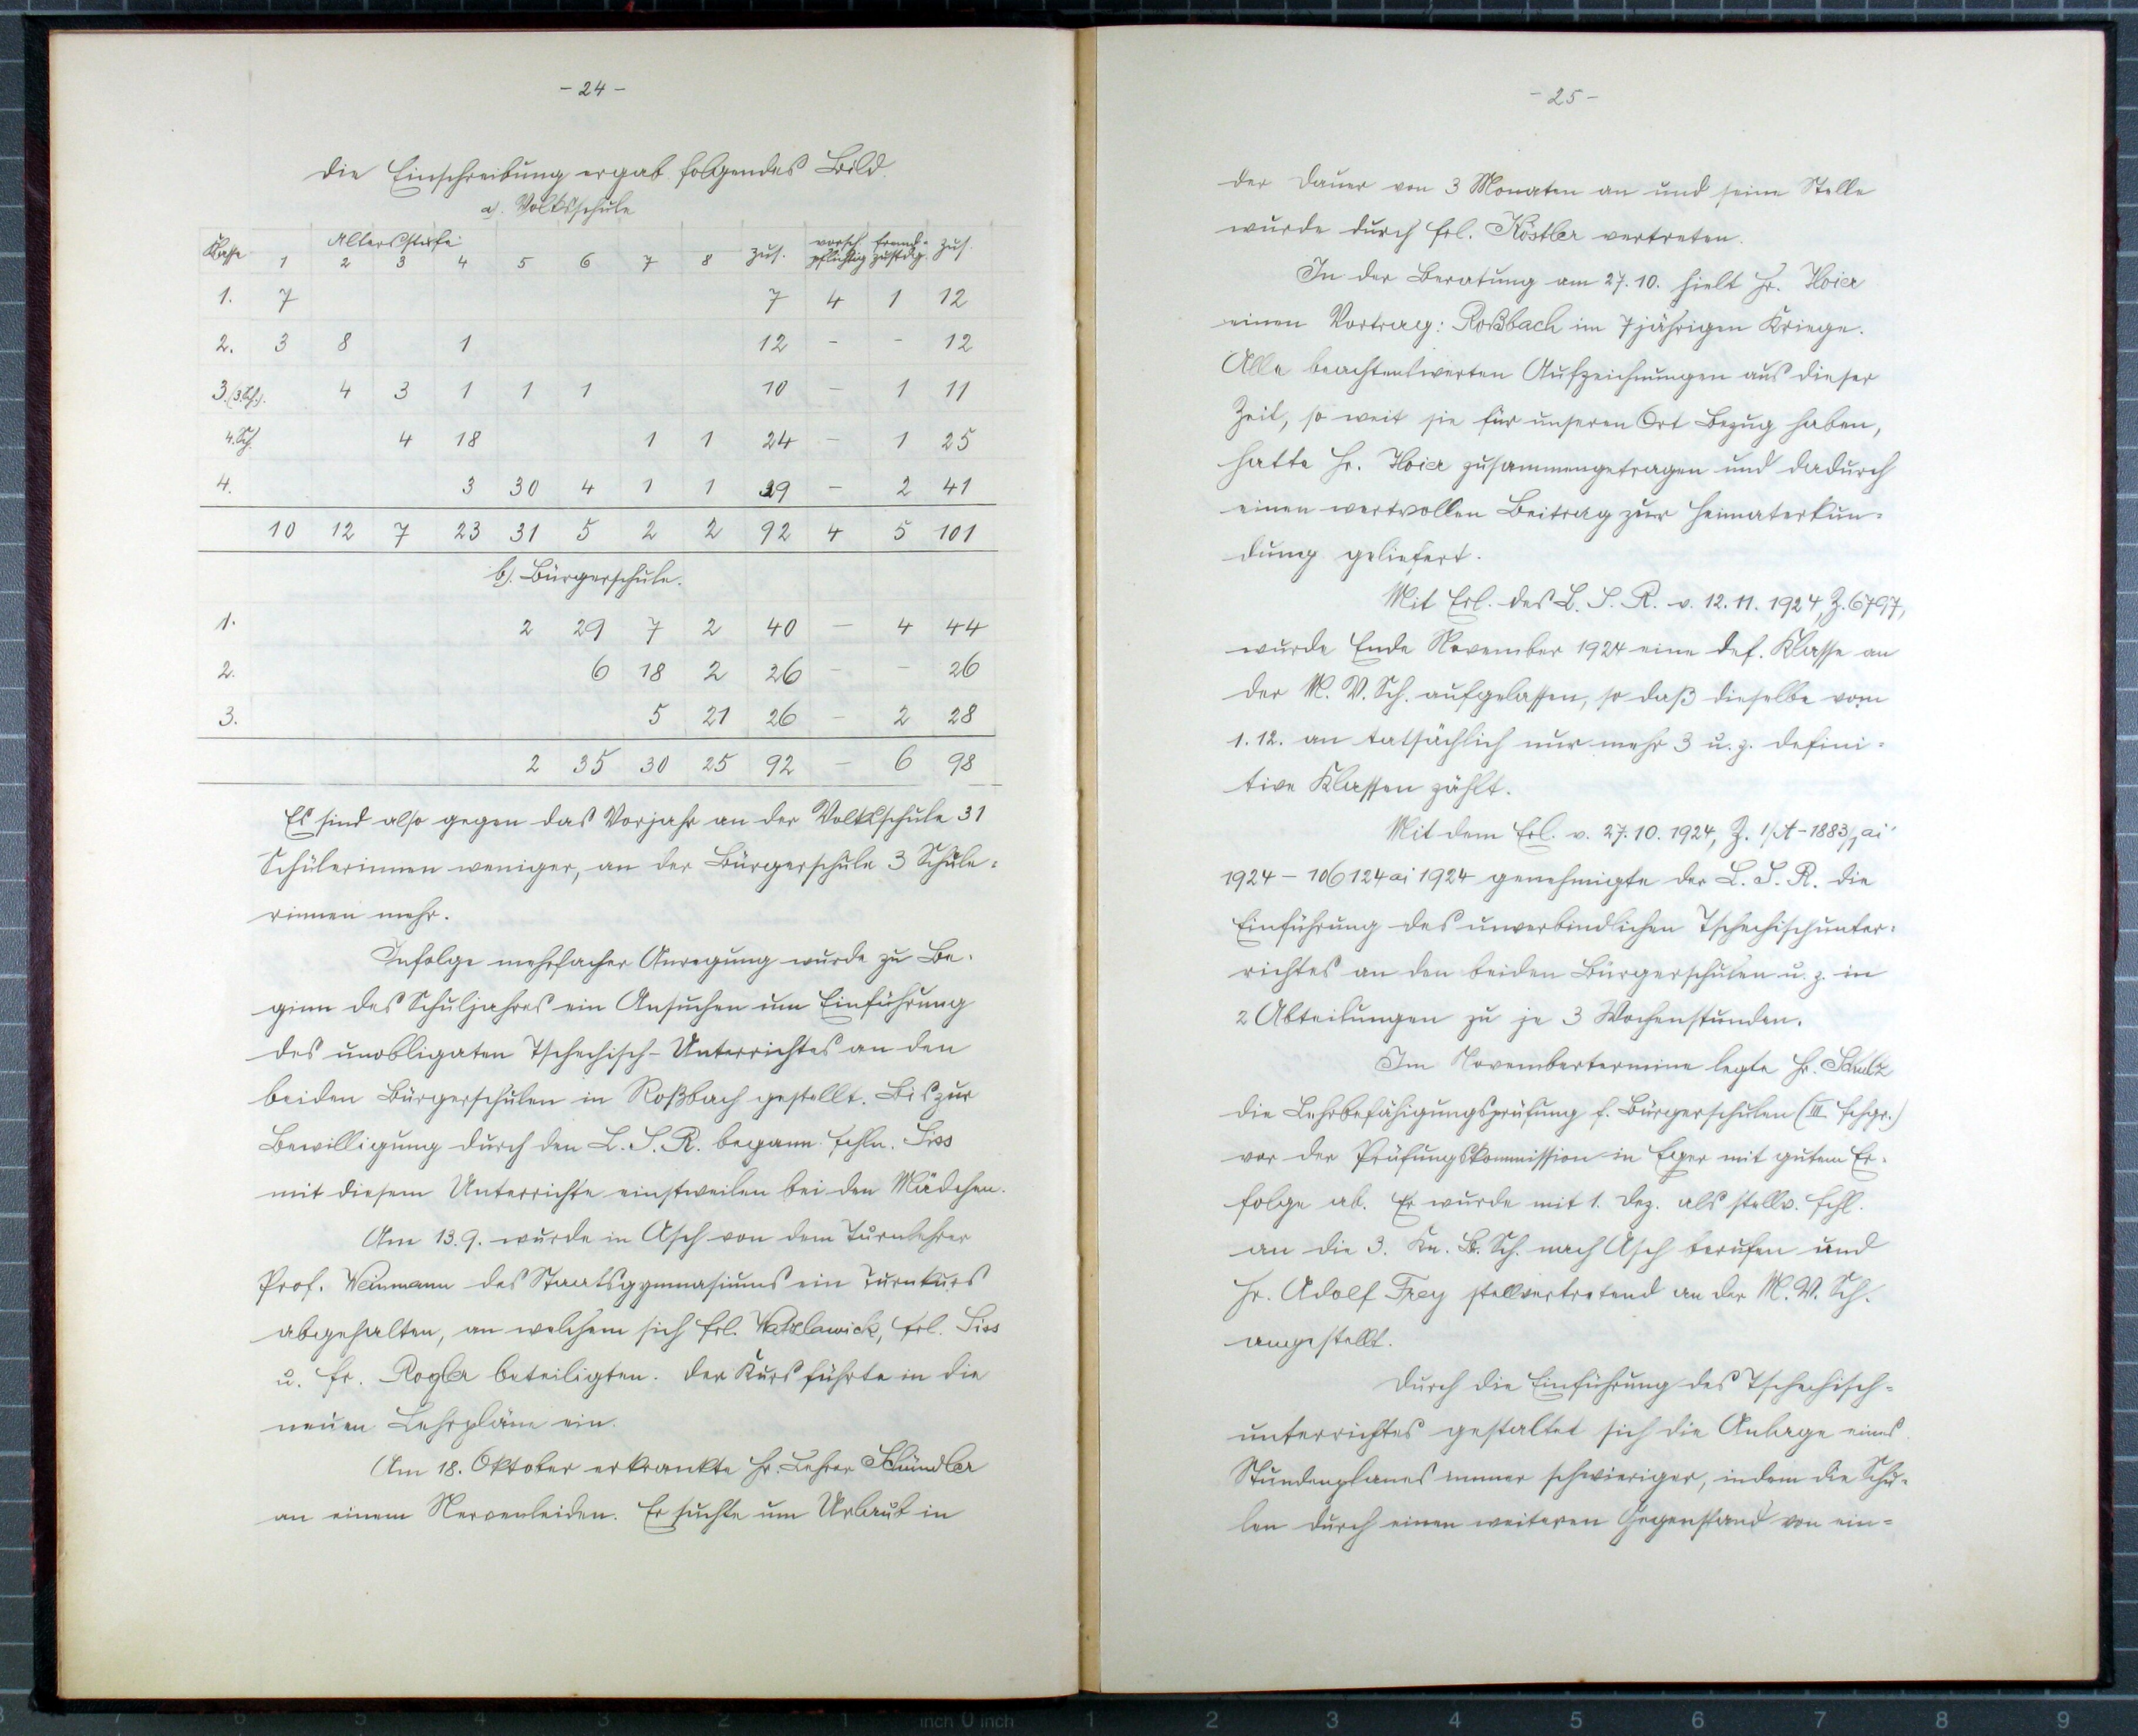 - 24 -
Die Einschreibung ergab folgendes Bild.
a). Volksschule
Klasse Altersstufe zus. vorsch. fremd- zus.
1 2 3 4 5 6 7 8 pflichtig zustdg.
1. 7 7 4 1 12
2. 3 8 1 12 - - 12
3. (3. Sch.). 4 3 1 1 1 10 - 1 11
4. Sch. 4 18 1 1 24 - 1 25
4. 3 30 4 1 1 39 - 2 41
10 12 7 23 31 5 2 2 92 4 5 101
b). Bürgerschule.
1. 2 29 7 2 40 - 4 44
2. 6 18 2 26 - - 26
3. 5 21 26 - 2 28
2 35 30 25 92 - 6 98
Es sind also gegen das Vorjahr an der Volksschule 31
Schülerinnen weniger, an der Bürgerschule 3 Schüle=
rinnen mehr.
Infolge mehrfacher Anregung wurde zu Be-
ginn des Schuljahres ein Ansuchen um Einführung
des unobligaten Tschechisch-Unterrichtes an den
beiden Bürgerschulen in Roßbach gestellt. Bis zur
Bewilligung durch den L. S. R. begann Fchln. Siss
mit diesem Unterrichte einstweilen bei den Mädchen.
Am 13.9. wurde in Asch von dem Turnlehrer
Prof. Weinmann des Staatsgymnasiums ein Turnkurs
abgehalten, an welchem sich Frl. Watzlawick, Frl. Siss
u. Fr. Rogler beteiligten. Der Kurs führte in die
neuen Lehrpläne ein.
Am 18. Oktober erkrankte Hr. Lehrer Schündler
an einem Nervenleiden. Er suchte um Urlaub in
- 25 -
der Dauer von 3 Monaten an und seine Stelle
wurde durch Frl. Köstler vertreten.
In der Beratung am 27.10. hielt Hr. Hoier
einen Vortrag: Roßbach im 7jährigen Kriege.
Alle beachtenswerten Aufzeichnungen aus dieser
Zeit, so weit sie für unseren Ort Bezug haben,
hatte Hr. Hoier zusammengetragen und dadurch
einen wertvollen Beitrag zur Heimaterkun=
dung geliefert.
Mit Erl. des L. S. R. v. 12.11.1924, Z. 6797,
wurde Ende November 1924 eine def. Klasse an
der M. V. Sch. aufgelassen, so daß dieselbe vom
1.12. an tatsächlich nur mehr 3 u. z. defini=
tive Klassen zählt.
Mit dem Erl. v. 27.10.1924, Z. I/A-1883/1 ai
1924 - 106124 ai 1924 genehmigte der L. S. R. die
Einführung des unverbindlichen Tschechischunter=
richtes an den beiden Bürgerschulen u. z. in
2 Abteilungen zu je 3 Wochenstunden.
Im Novembertermine legte Hr. Schulz
die Lehrbefähigungsprüfung f. Bürgerschulen (III. Fchgr.)
vor der Prüfungskommission in Eger mit gutem Er-
folge ab. Er wurde mit 1. Dez. als stellv. Fchl.
an die 3. Kn. B. Sch. nach Asch berufen und
Hr. Adolf Frey stellvertretend an der M. V. Sch.
angestellt.
Durch die Einführung des Tschechisch=
unterrichtes gestaltet sich die Anlage eines
Stundenplanes immer schwieriger, indem die Schu-
len durch einen weiteren Gegenstand von ein=
7 6 5 4 3 2 1 inch 0 inch 1 2 3 4 5 6 7 8 9